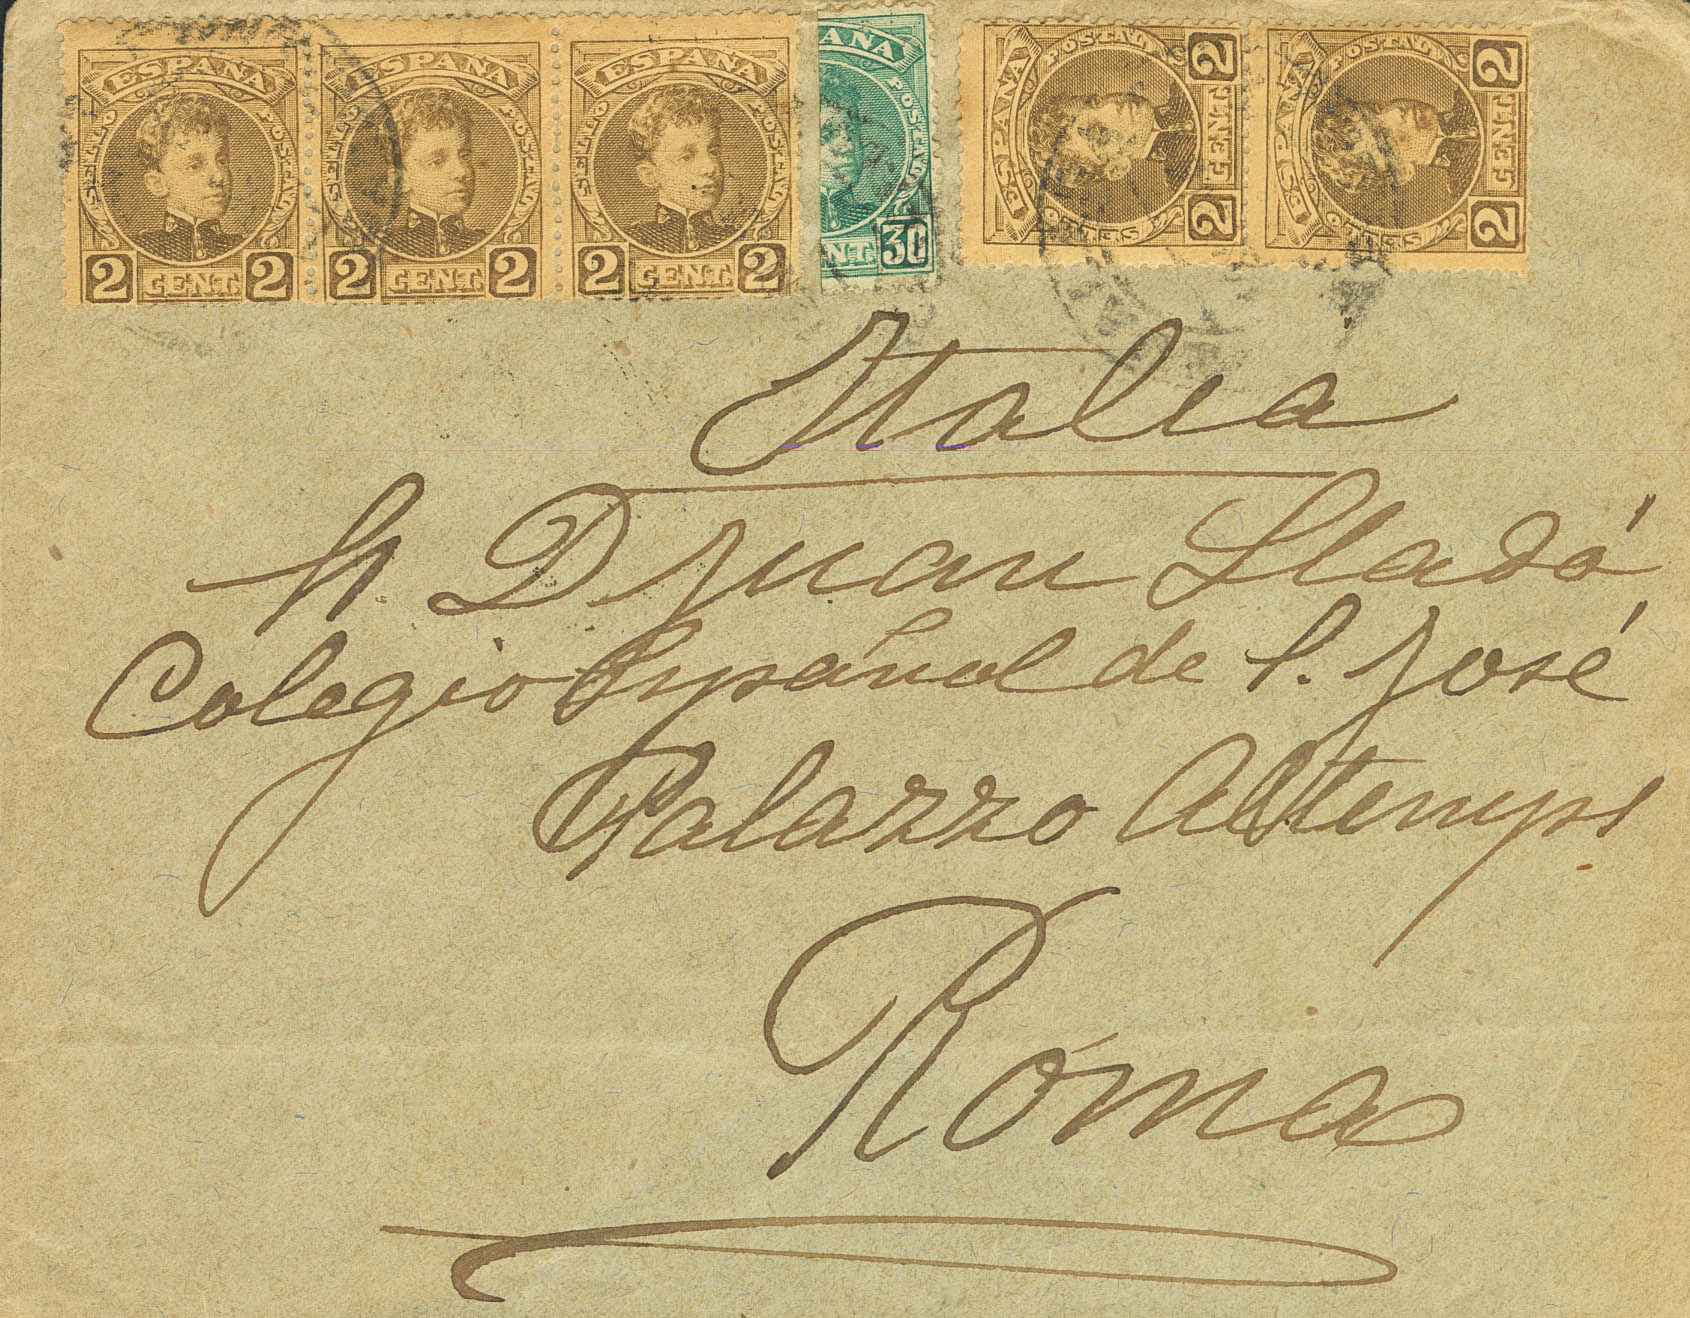 ESPAÑA ESPAÑA ESPAÑA
SELLO POSTAL SELLO POSTAL SELLO POSTAL
2 CENT. 2 2 CENT. 2 2 CENT. 2
AÑA
POSTAL
NT. 30
ESPAÑA POSTAL SELLO 2 CENT. 2
ESPAÑA POSTAL SELLO 2 CENT. 2
Italia
D Juan Lladó
Colegio Español de S. José
Palazzo Altemps
Róma